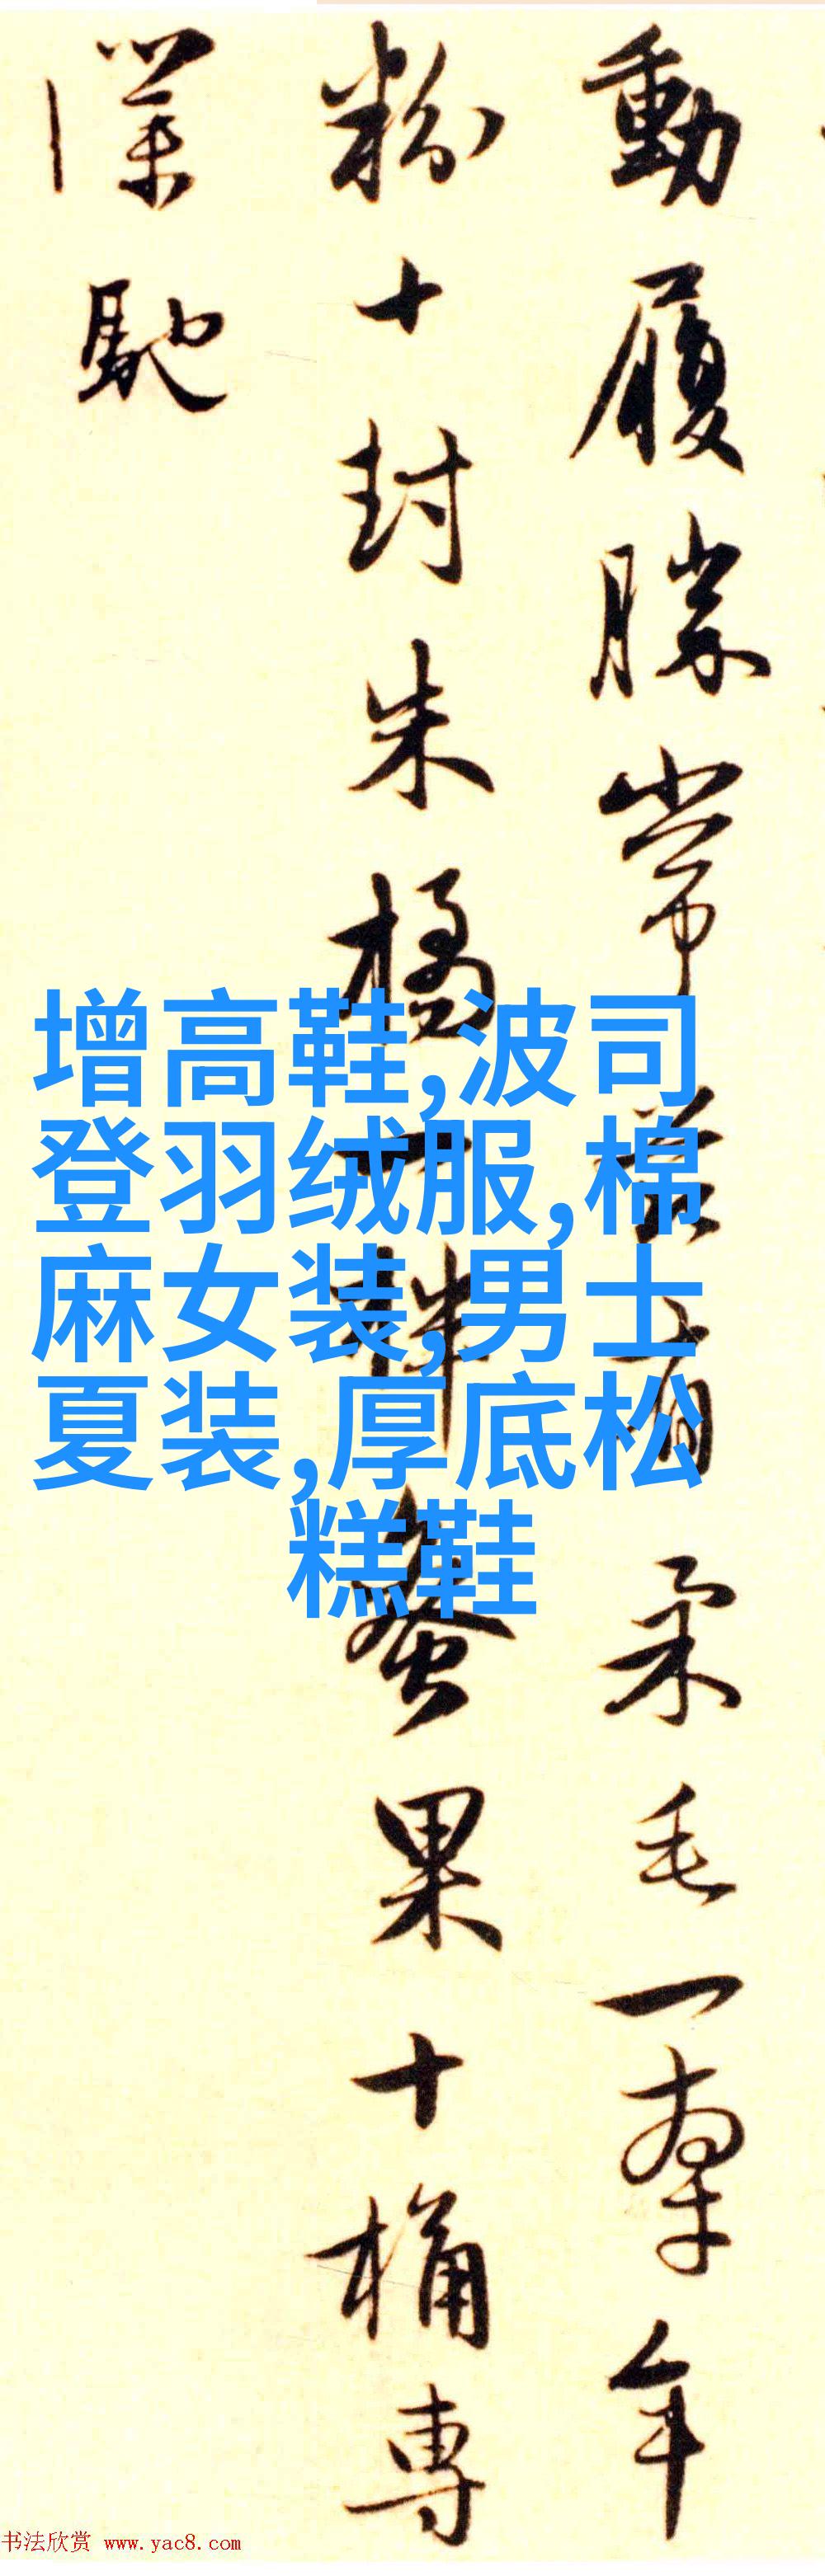 動履勝常
柔毛一牽年
粉十封朱橘
果十桶専
僕馳
增高鞋,波司
登羽绒服,棉
麻女装,男士
夏装,厚底松
糕鞋
书法欣赏 www.yac8.com